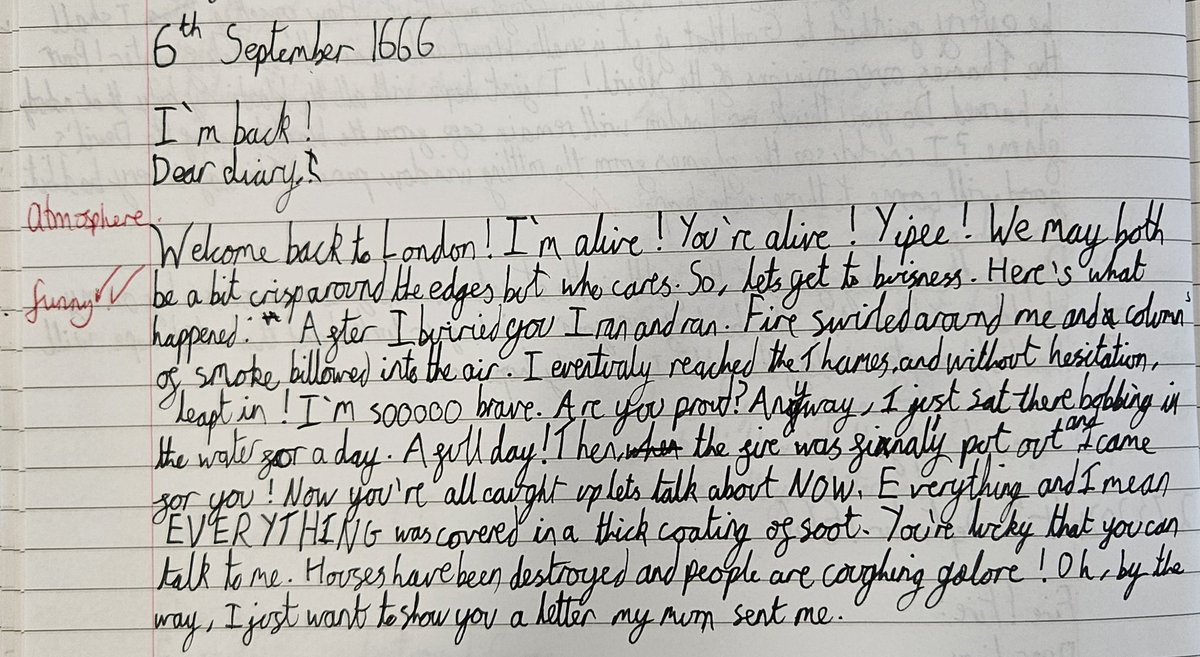 6th September 1666
I'm back!
Dear diary,
Atmosphere.
Welcome back to London! I'm alive! You're alive! Yipee! We may both
funny
be a bit crisp around the edges but who cares. So, lets get to buisness. Here's what
happened: After I buiried you I ran and ran. Fire swirled around me and a column's
of smoke billowed into the air. I eventualy reached the Thames, and without hesitation,
leapt in! I'm sooooo brave. Are you proud? Anyway, I just sat there bobbing in
the water for a day. A full day! Then, when the fire was finnaly put out and I came
for you! Now you're all caught up lets talk about NOW. Everything and I mean
EVERYTHING was covered in a thick coating of soot. You're lucky that you can
talk to me. Houses have been destroyed and people are coughing galore! Oh, by the
way, I just want to show you a letter my mum sent me.